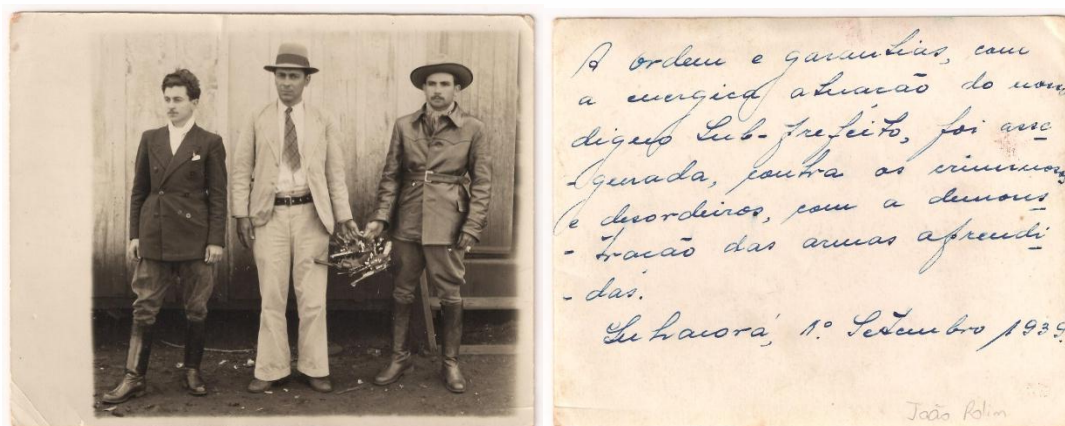 A ordem e garantias, com
a energica atuação do noss
digno Sub-Prefeito, foi asse
-gurada, contra os criminosos
e desordeiros, com a demons
-tracão das armas aprendi
-das.
1º Setembro 1939.
João Rolim